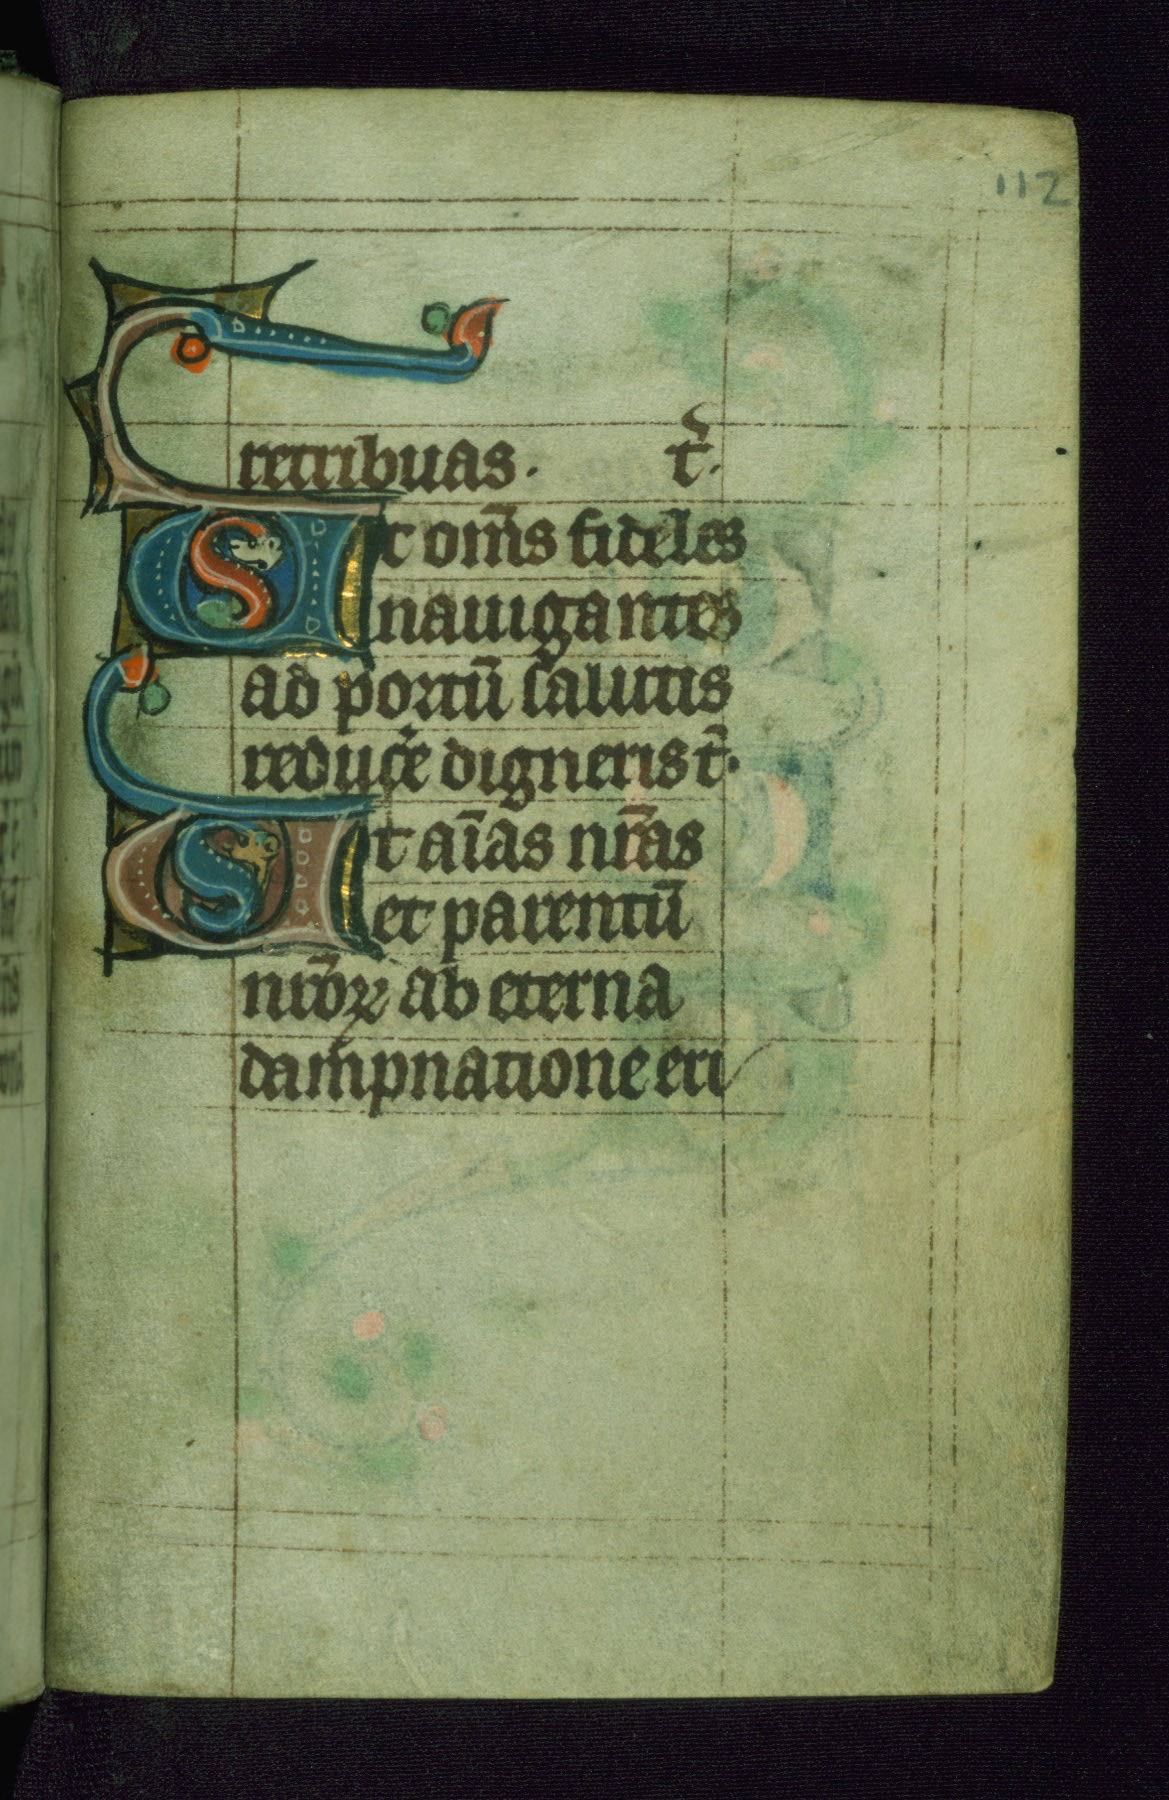 112
retribuas. t̃.
Ut om̃s fideles
nauigantes
ad portũ salutis
reducẽ digneris t̃.
Ut aĩas nr̃as
et parentũ
nrõꝝ ab eterna
dam̃pnatione eri